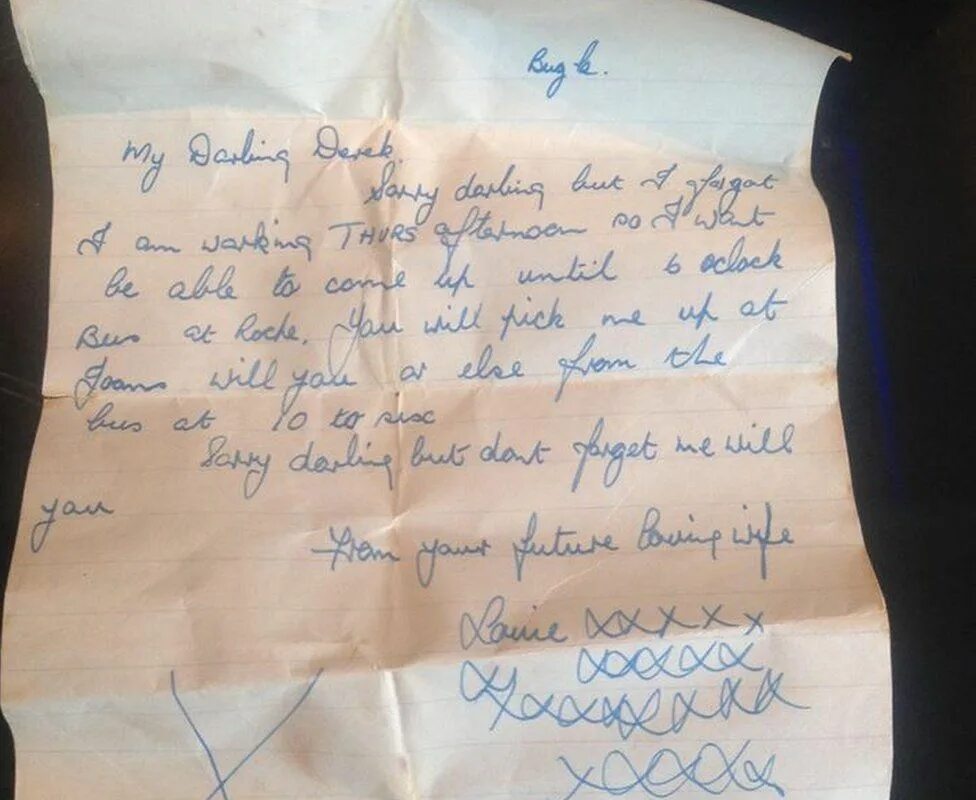 Bugle.
My Darling Derek.
Sorry darling but I forgot
I am working THURS afternoon so I wont
be able to come up until 6 oclock
Bus at Roche. You will pick me up at
Joans will you or else from the
bus at 10 to six
Sorry darling but dont forget me will
you
From your future loving wife
Lorrie xxxxx
xxxxx
xxxxxxxxxxx
xxxxx
X